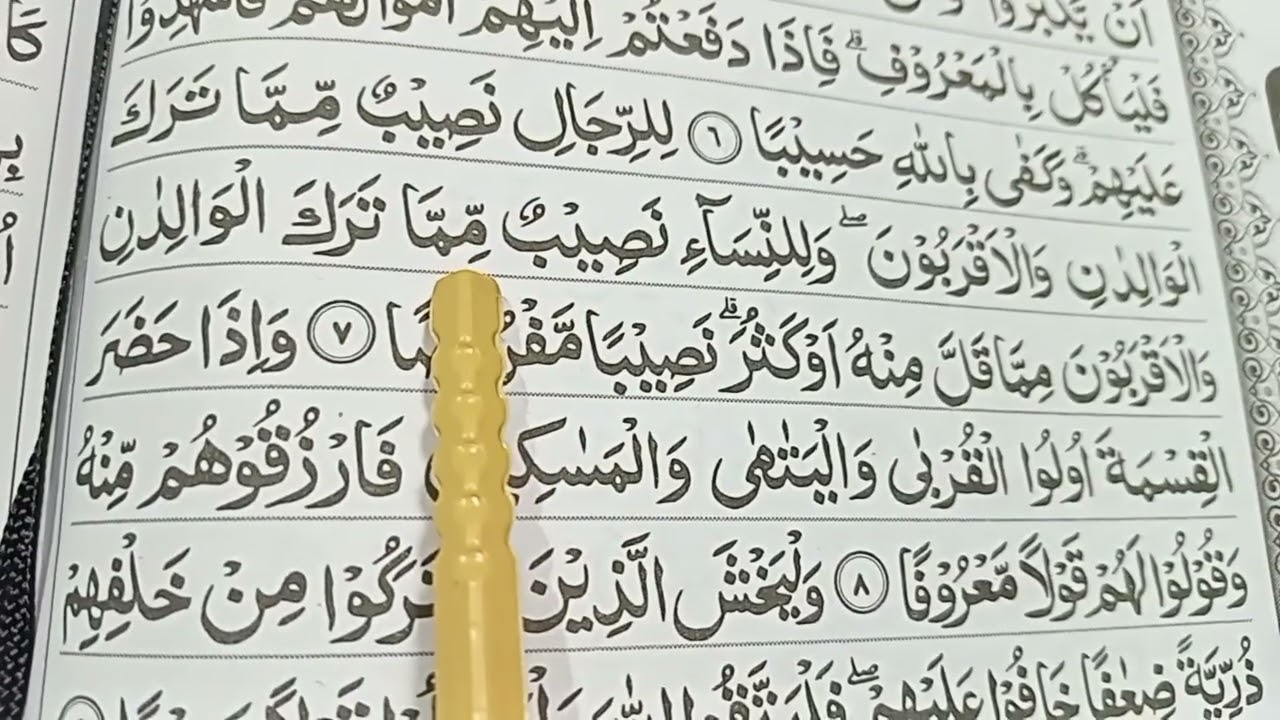 اَنْ يَّكْبَرُوْا
فَلْيَأْكُلْ بِالْمَعْرُوْفِ ۗ فَاِذَا دَفَعْتُمْ اِلَيْهِمْ اَمْوَالَهُمْ فَاَشْهِدُوْا
عَلَيْهِمْ ۗ وَكَفٰى بِاللّٰهِ حَسِيْبًا ٦ لِلرِّجَالِ نَصِيْبٌ مِّمَّا تَرَكَ
الْوَالِدٰنِ وَالْاَقْرَبُوْنَ ۖ وَلِلنِّسَاۤءِ نَصِيْبٌ مِّمَّا تَرَكَ الْوَالِدٰنِ
وَالْاَقْرَبُوْنَ مِمَّا قَلَّ مِنْهُ اَوْ كَثُرَ ۗ نَصِيْبًا ٧ وَاِذَا حَضَرَ
الْقِسْمَةَ اُولُوا الْقُرْبٰى وَالْيَتٰمٰى وَالْمَسٰكِيْنُ فَارْزُقُوْهُمْ مِّنْهُ
وَقُوْلُوْا لَهُمْ قَوْلًا مَّعْرُوْفًا ٨ وَلْيَخْشَ الَّذِيْنَ تَرَكُوْا مِنْ خَلْفِهِمْ
ذُرِّيَّةً ضِعٰفًا خَافُوْا عَلَيْهِمْ ۖ